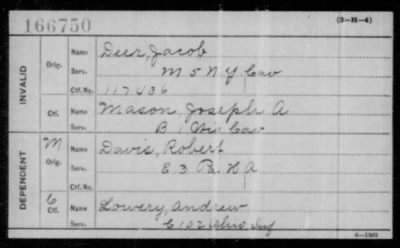 166750
(3-H-4)
INVALID
Orig.
Name Deer, Jacob
Serv. M 5 N Y Cav
Ctf. No. 117436
Ctf.
Name Mason, Joseph A
Serv. B 1 Wis Cav
DEPENDENT
M
Orig.
Name Davis, Robert
Serv. E 3 Pa. H A
Ctf. No.
C
Ctf.
Name Lowery, Andrew
Serv. E 102 Ohio Inf
6-1305